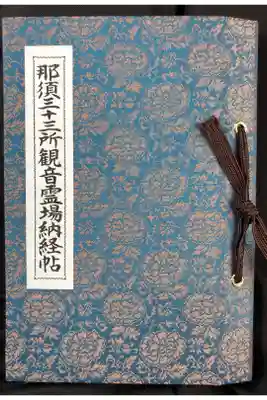 那須三十三所観音霊場納経帖